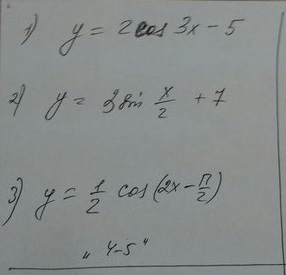 1) y = 2 cos 3x - 5
2) y = 3 sin x/2 + 7
3) y = 1/2 cos (2x - π/2)
„ 4-5 "